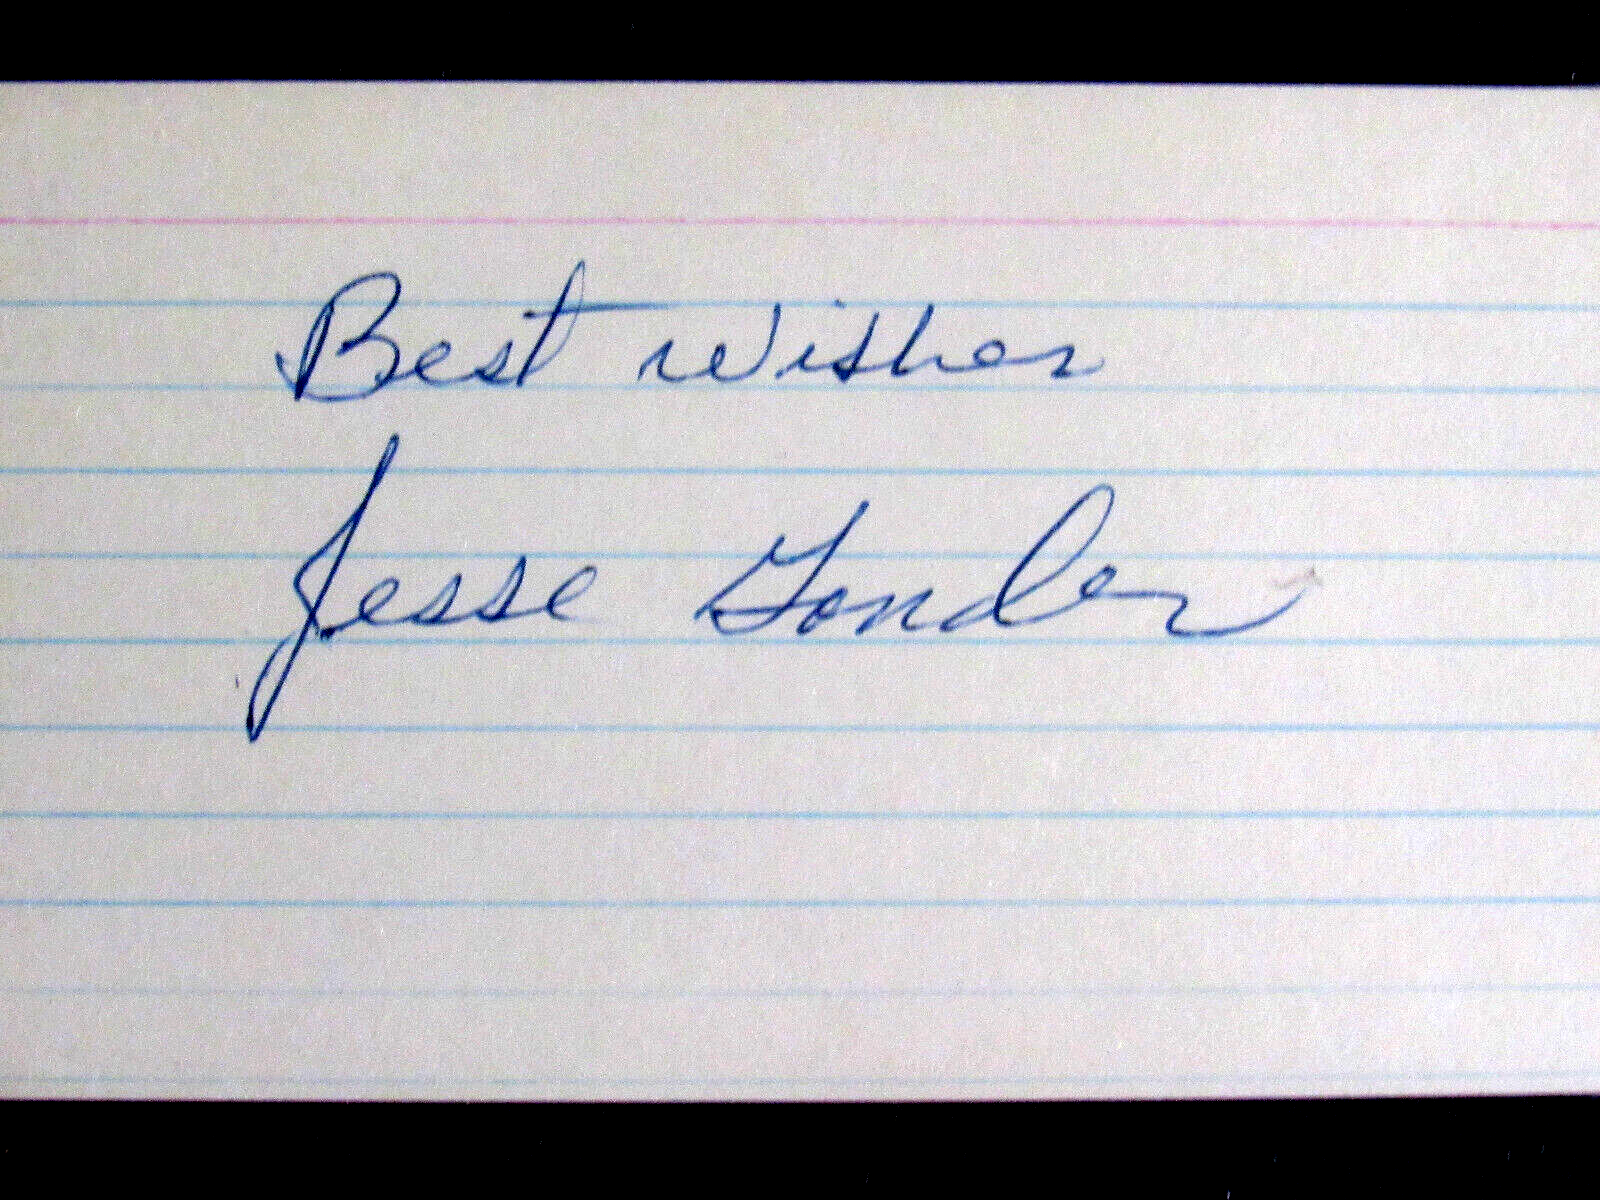 Best wishes
Jesse Gonder